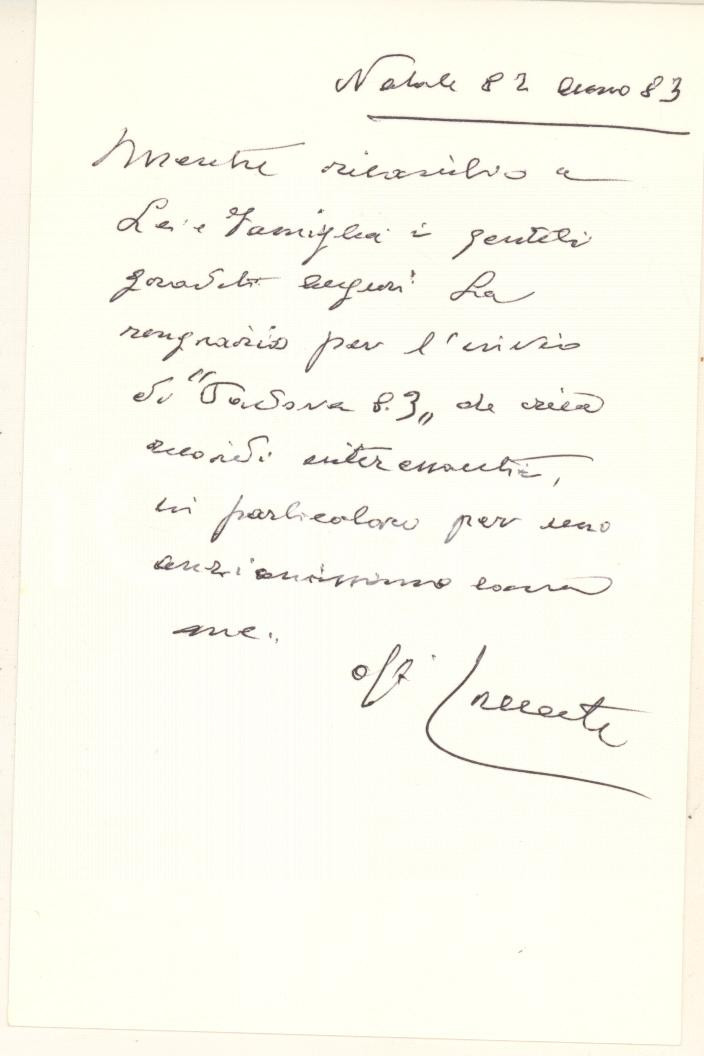 Natale 82 anno 83
Mentre ricambio a
Lei e Famiglia i gentili
graditi auguri La
ringrazio per l'invio
di "Padova 83" 
ricordi interessanti,
in particolare per uno
anzianissimo come
me.